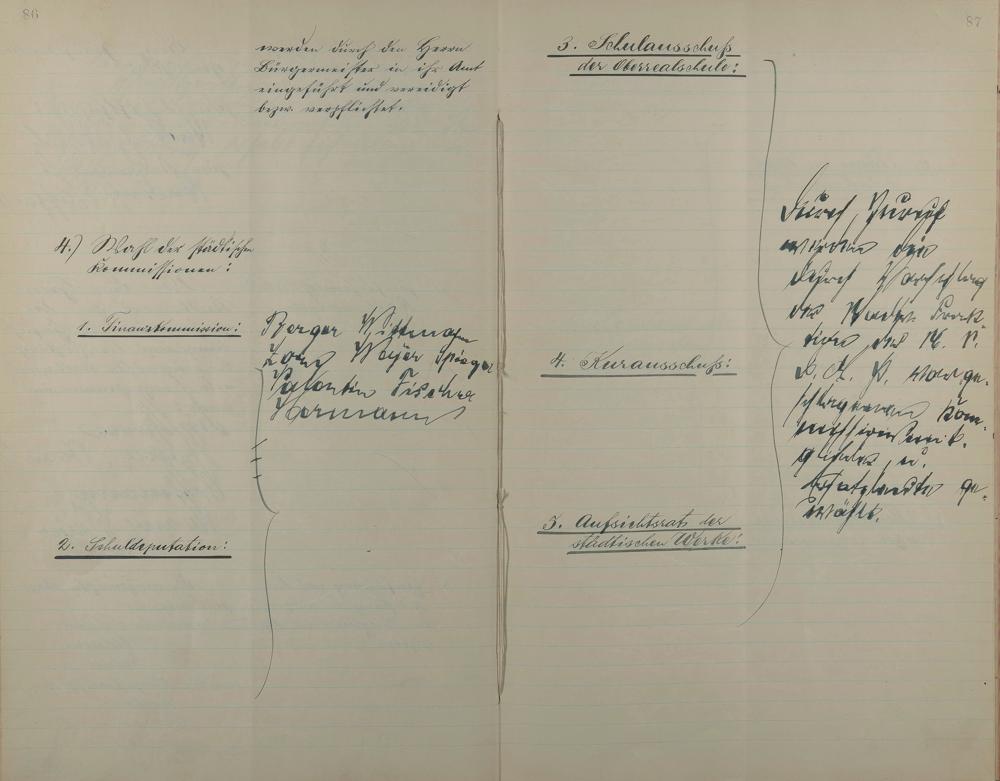 86
werden durch den Herrn
Bürgermeister in ihr Amt
eingeführt und vereidigt
bezw. verpflichtet.
4.) Wahl der städtischen
Kommissionen:
1. Finanzkommission:
Berger Wittmann
Zorn Meyer Spieger
Valentin Fischer
Hermann
2. Schuldeputation:
87
3. Schulausschuß
der Oberrealschule:
4. Kurausschuß:
5. Aufsichtsrat der
städtischen Werke:
Durch Zuruf
werden die
durch Vorschlag
der Stadtv. Frak-
tion der N. S.
D. A. P. vorge-
schlagenen Kom-
missionsmit-
glieder u.
Ersatzleute ge-
wählt.